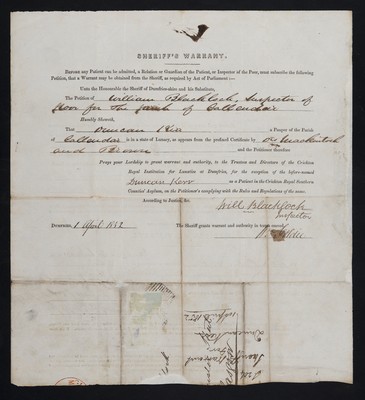 SHERIFF'S WARRANT.
BEFORE any Patient can be admitted, a Relation or Guardian of the Patient, or Inspector of the Poor, must subscribe the following
Petition, that a Warrant may be obtained from the Sheriff, as required by Act of Parliament:—
Unto the Honourable the Sheriff of Dumfries-shire and his Substitute,
The Petition of William Blacklock, Inspector of
Poor for the Parish of Callendar
Humbly Sheweth,
That Duncan Kerr a Pauper of the Parish
of Callendar is in a state of Lunacy, as appears from the prefixed Certificate by Drs Mackintosh
and Brown and the Petitioner therefore
Prays your Lordship to grant warrant and authority, to the Trustees and Directors of the Crichton
Royal Institution for Lunatics at Dumfries, for the reception of the before-named
Duncan Kerr as a Patient in the Crichton Royal Southern
Counties' Asylum, on the Petitioner's complying with the Rules and Regulations of the same.
According to Justice, &c.
Will Blacklock
Inspector
DUMFRIES, 1 April 1852 The Sheriff grants warrant and authority in terms craved.
Duncan Kerr
1852